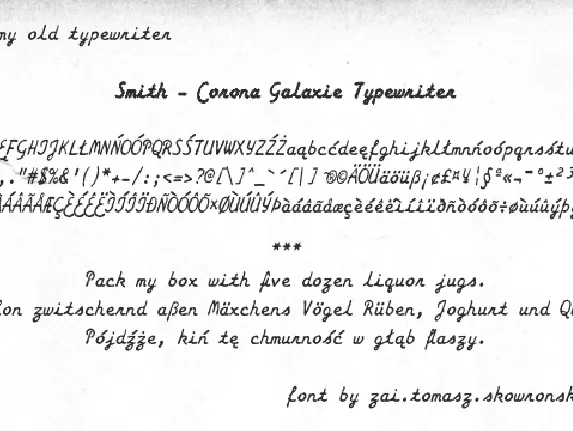 my old typewriter
Smith - Corona Galaxie Typewriter
EFGHIJKLŁMNŃOÓPQRSŚTUVWXYZŹŻaąbcćdeęfghijklłmnńoópqrsśtu
,."#$%&'()*+-/:;<=>?@[\]^_`´{|}~©®ÄÖÜäöüß¡¢£¤¥¦§ª«¬¯°±²³
ÀÁÂÃÅÆÇÈÉÊËÌÍÎÏÐÑÒÓÔÕ×ØÙÚÛÝÞàáâãåæçèéêëìíîïðñòóôõ÷øùúûýþ
***
Pack my box with five dozen liquor jugs.
zwitschernd aßen Mäxchens Vögel Rüben, Joghurt und
Pójdźże, kiń tę chmurność w głąb flaszy.
font by zai.tomasz.skowronsk